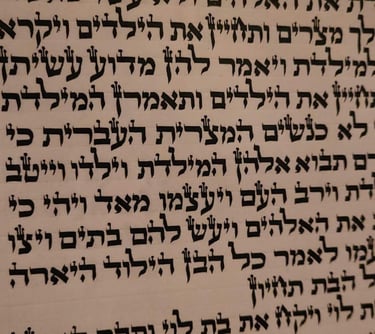 את האלהים
לך מצרים ותחיין את הילדים ויקרא
למילדת ויאמר להן מדוע עשיתן
תחיין את הילדים ותאמרן המילדת
לא כנשים המצרית העברית כי
רם תבוא אלהן המילדת וילדו וייטב
דת וירב העם ויעצמו מאד ויהי כי
את האלהים ויעש להם בתים ויצו
עמו לאמר כל הבן הילוד היארה
ל הבת תחיון
ת לוי ויקח את בת לוי